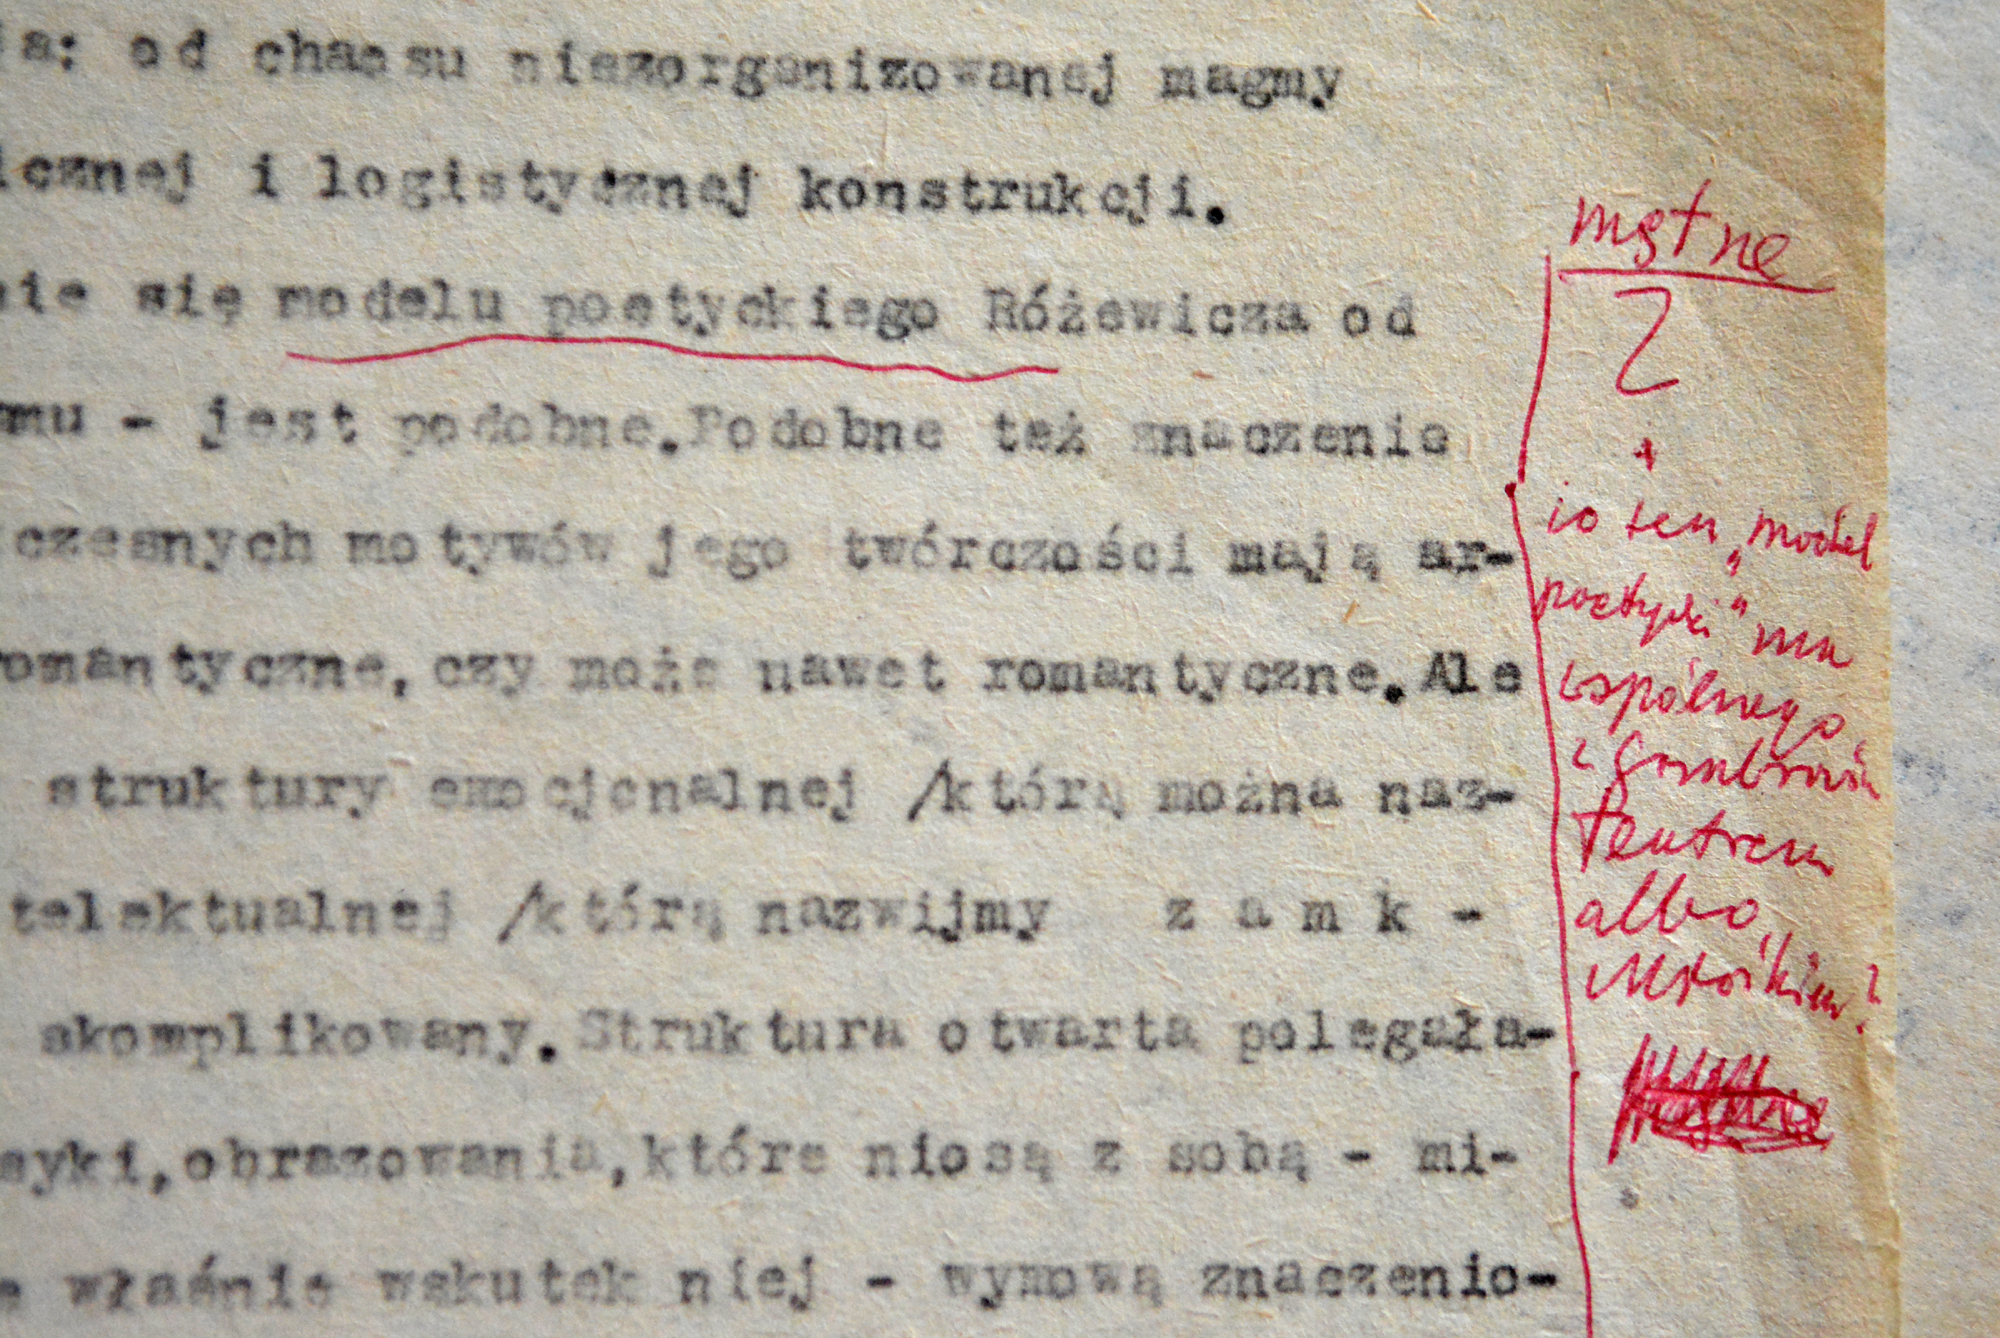 ia: od chaosu niezorganizowanej magmy
icznej i logistycznej konstrukcji.
nie się modelu poetyckiego Różewicza od
mu - jest podobne.Podobne też znaczenie
czesnych motywów jego twórczości mają ar-
romantyczne,czy może nawet romantyczne.Ale
struktury emocjonalnej /którą można naz-
telektualnej /którą nazwijmy z a m k -
skomplikowany.Struktura otwarta polegała-
syki,obrazowania,które niosą z sobą - mi-
e właśnie wskutek niej - wymową znaczenio-
mętne
+
co ten „model
poetycki" ma
wspólnego
z
Teatrem
albo